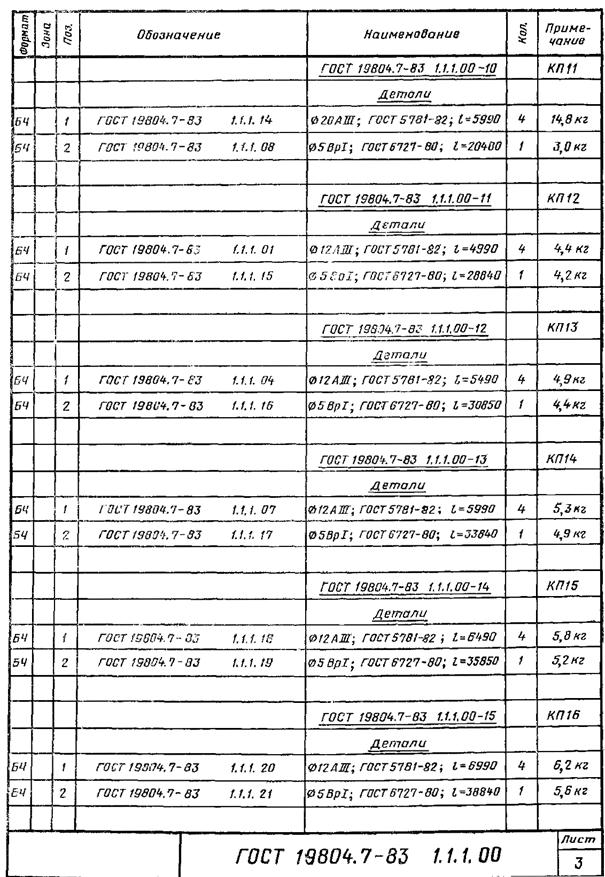 Формат Зона Поз. Обозначение Наименование Кол. Приме-
чание
ГОСТ 19804.7-83 1.1.1.00-10 КП11
Детали
БЧ 1 ГОСТ 19804.7-83 1.1.1.14 ⌀20АIII; ГОСТ 5781-82; l=5990 4 14,8 кг
БЧ 2 ГОСТ 19804.7-83 1.1.1.08 ⌀5ВрI; ГОСТ 6727-80; l=20400 1 3,0 кг
ГОСТ 19804.7-83 1.1.1.00-11 КП12
Детали
БЧ 1 ГОСТ 19804.7-83 1.1.1.01 ⌀12АIII; ГОСТ 5781-82; l=4990 4 4,4 кг
БЧ 2 ГОСТ 19804.7-83 1.1.1.15 ⌀5ВрI; ГОСТ 6727-80; l=28840 1 4,2 кг
ГОСТ 19804.7-83 1.1.1.00-12 КП13
Детали
БЧ 1 ГОСТ 19804.7-83 1.1.1.04 ⌀12АIII; ГОСТ 5781-82; l=5490 4 4,9 кг
БЧ 2 ГОСТ 19804.7-83 1.1.1.16 ⌀5ВрI; ГОСТ 6727-80; l=30850 1 4,4 кг
ГОСТ 19804.7-83 1.1.1.00-13 КП14
Детали
БЧ 1 ГОСТ 19804.7-83 1.1.1.07 ⌀12АIII; ГОСТ 5781-82; l=5990 4 5,3 кг
БЧ 2 ГОСТ 19804.7-83 1.1.1.17 ⌀5ВрI; ГОСТ 6727-80; l=33840 1 4,9 кг
ГОСТ 19804.7-83 1.1.1.00-14 КП15
Детали
БЧ 1 ГОСТ 19804.7-83 1.1.1.18 ⌀12АIII; ГОСТ 5781-82; l=6490 4 5,8 кг
БЧ 2 ГОСТ 19804.7-83 1.1.1.19 ⌀5ВрI; ГОСТ 6727-80; l=35850 1 5,2 кг
ГОСТ 19804.7-83 1.1.1.00-15 КП16
Детали
БЧ 1 ГОСТ 19804.7-83 1.1.1.20 ⌀12АIII; ГОСТ 5781-82; l=6990 4 6,2 кг
БЧ 2 ГОСТ 19804.7-83 1.1.1.21 ⌀5ВрI; ГОСТ 6727-80; l=38840 1 5,6 кг
ГОСТ 19804.7-83 1.1.1.00 Лист
3